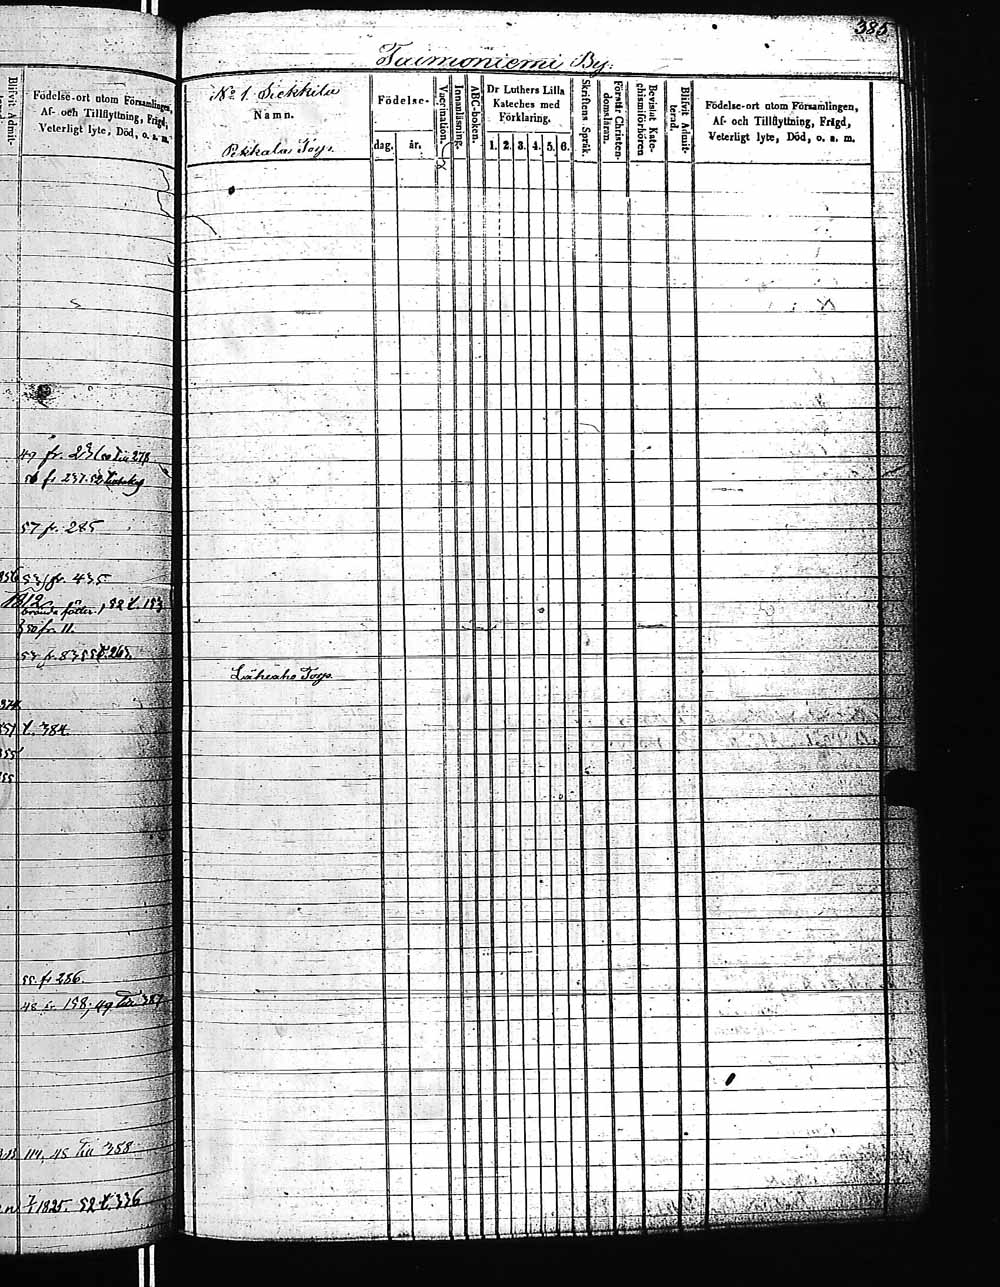 Blifvit Admit-
Födelse-ort utom Församlingen,
Af- och Tillflyttning, Frigd,
Veterligt lyte, Död, o. s. m.
49 fr. 278
56 fr 237. 52
57 fr. 285
53/ fr. 435
1812
brända fötter, 52 t. 153
50 fr. 11.
53 fr. 83 55 t. 263.
374
851 t. 384.
855
55
55. fr 286.
48 fr. 158; 49 till 387
114, 45 till 358
1825. 52 t. 336
385
Taimoniemi By.
No 1. Sickkila
Namn.
Pekkala Torp.
Födelse-
dag. år.
Vaccination.
Innanläsning.
ABC-boken.
Dr Luthers Lilla
Kateches med
Förklaring.
1. 2. 3. 4. 5. 6.
Skriftens Språk.
Förstår Christen-
domsläran.
Bevistat Kate-
chismiförhören
Blifvit Admit-
terad.
Födelse-ort utom Församlingen,
Af- och Tillflyttning, Frigd,
Veterligt lyte, Död, o. s. m.
Läheaho Torp.